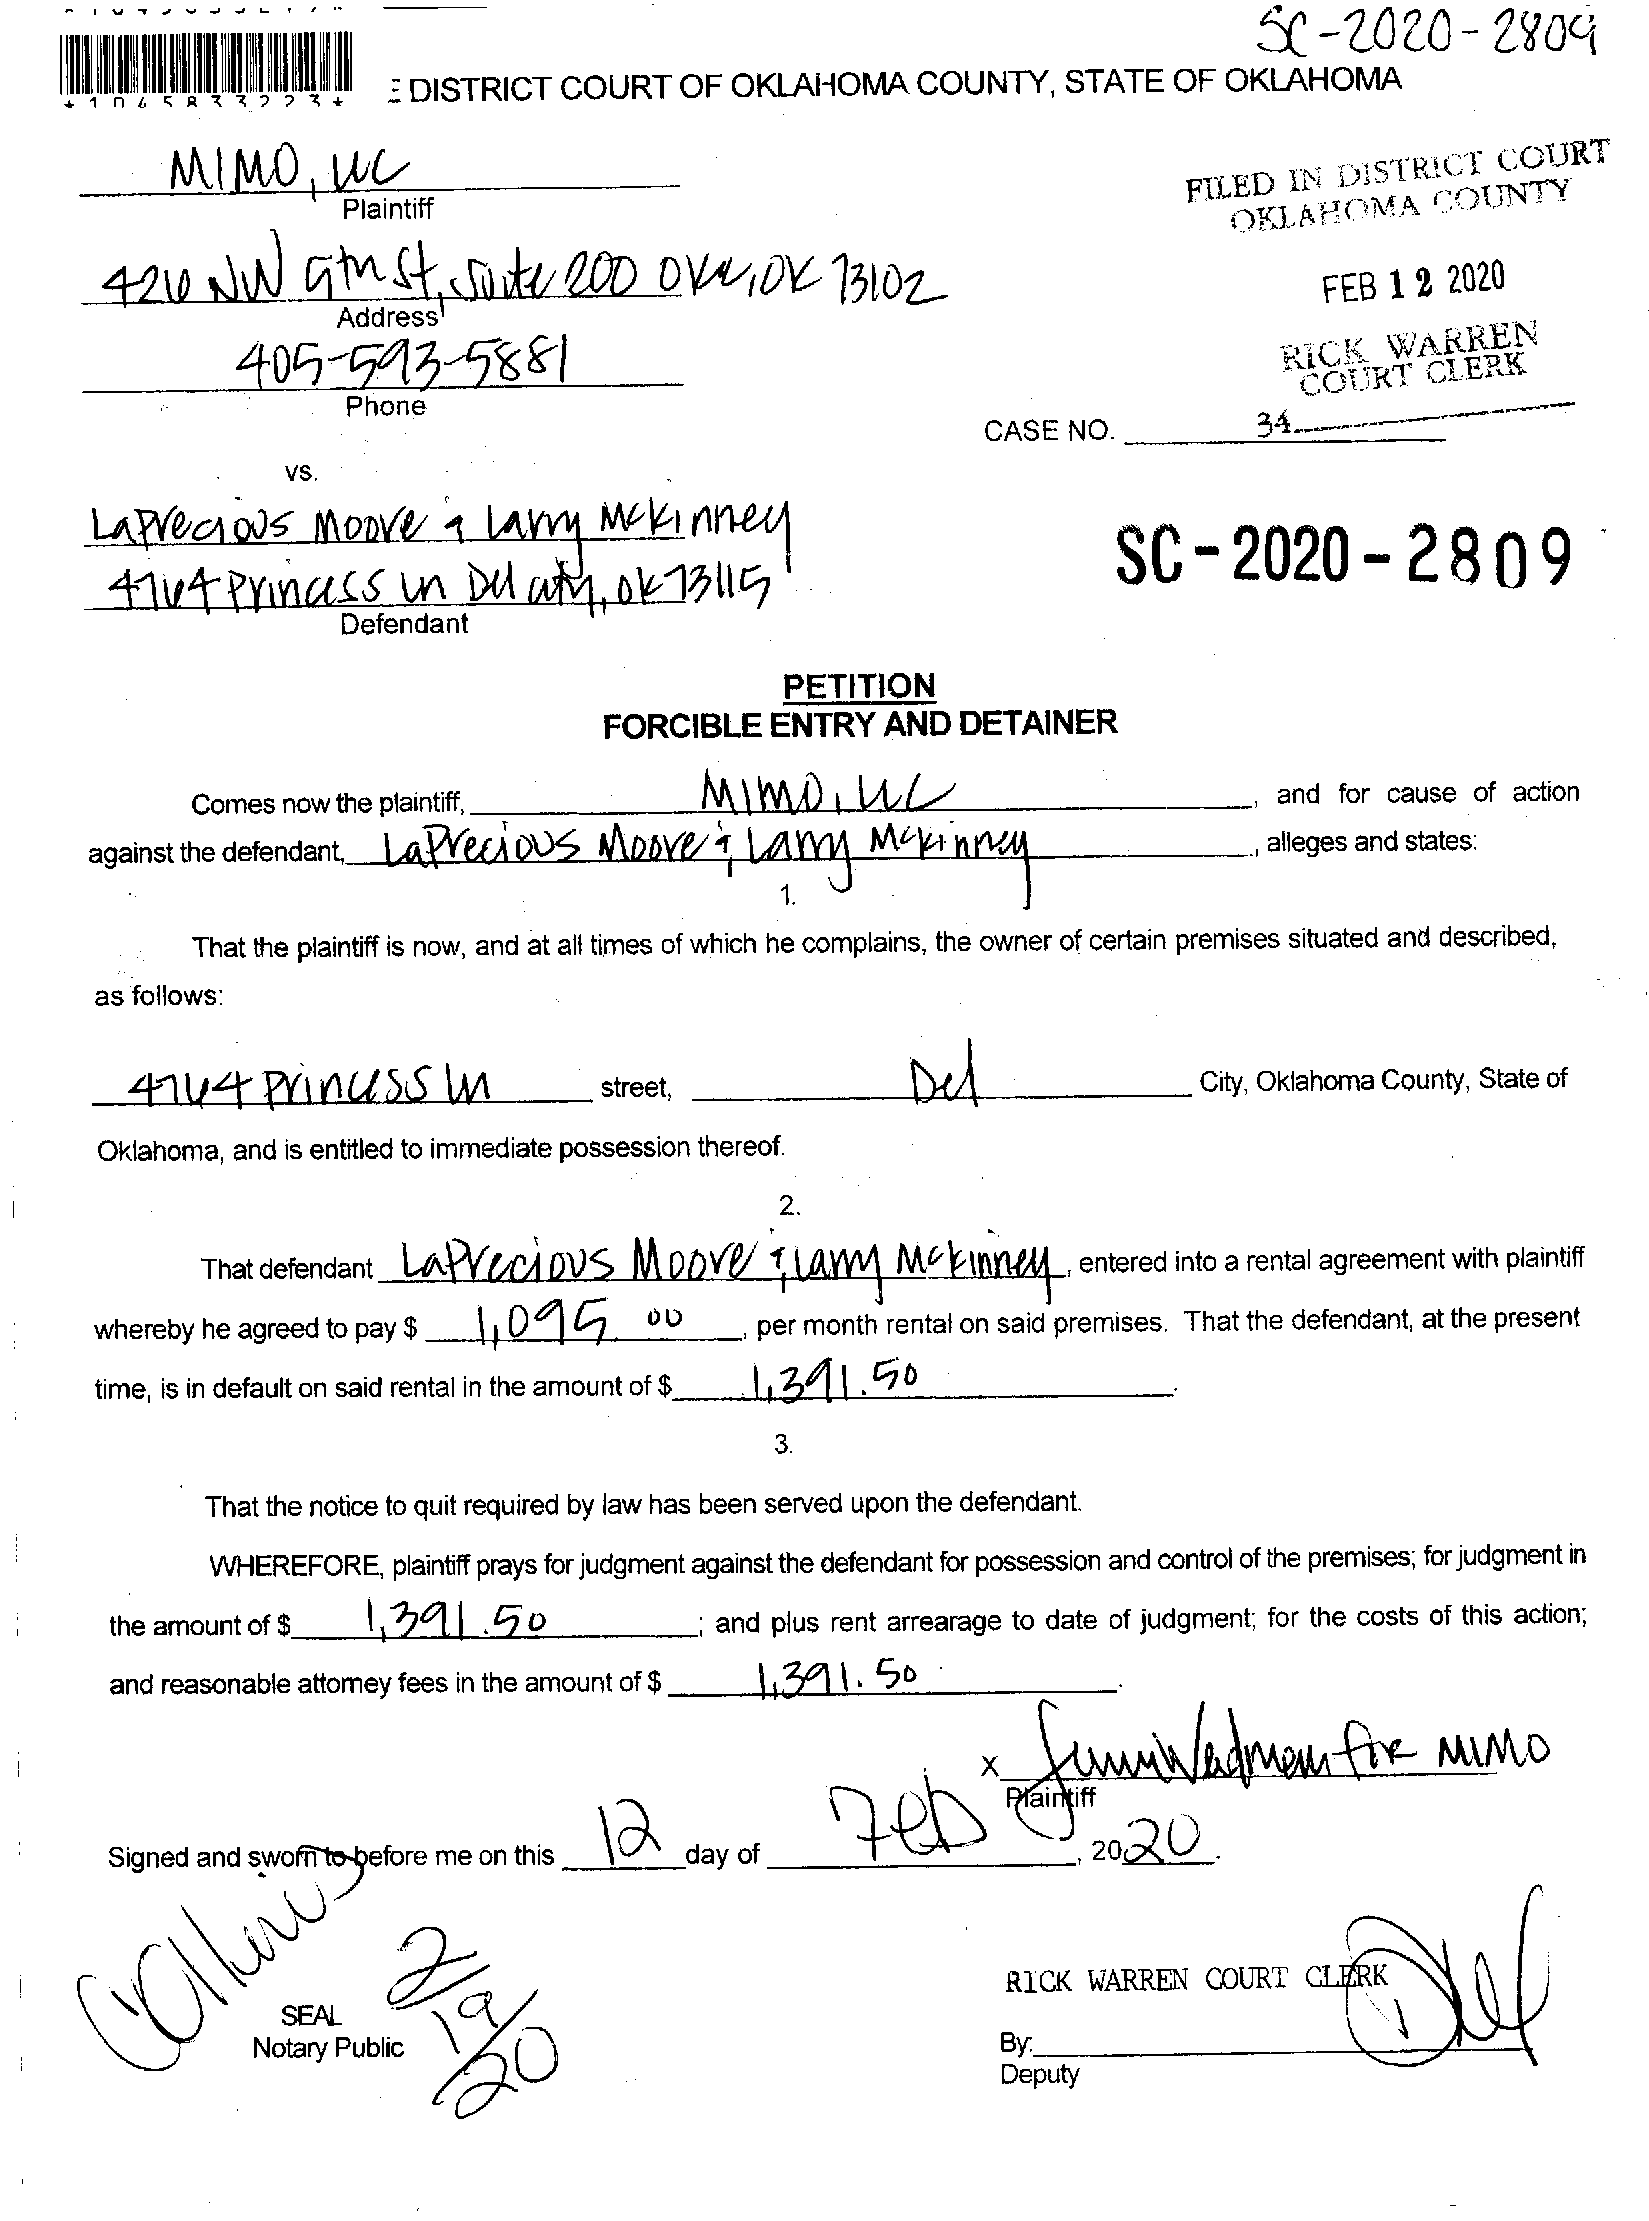 SC-2020-2809
*1045833223*
E DISTRICT COURT OF OKLAHOMA COUNTY, STATE OF OKLAHOMA
MIMO, LLC
Plaintiff
FILED IN DISTRICT COURT
OKLAHOMA COUNTY
NW 5th St, Suite 200 OKC, OK 73102
Address
FEB 12 2020
405-593-5881
Phone
RICK WARREN
COURT CLERK
CASE NO. 34
vs.
LaPrecious Moore & Larry McKinney
4764 Princess Ln Del City, OK 73115
Defendant
SC-2020-2809
PETITION
FORCIBLE ENTRY AND DETAINER
Comes now the plaintiff, MIMO, LLC, and for cause of action
against the defendant, LaPrecious Moore & Larry McKinney, alleges and states:
1.
That the plaintiff is now, and at all times of which he complains, the owner of certain premises situated and described,
as follows:
4764 Princess Ln street, Del City, Oklahoma County, State of
Oklahoma, and is entitled to immediate possession thereof.
2.
That defendant LaPrecious Moore & Larry McKinney, entered into a rental agreement with plaintiff
whereby he agreed to pay $ 1,095 00, per month rental on said premises. That the defendant, at the present
time, is in default on said rental in the amount of $ 1,391.50.
3.
That the notice to quit required by law has been served upon the defendant.
WHEREFORE, plaintiff prays for judgment against the defendant for possession and control of the premises; for judgment in
the amount of $ 1,391.50; and plus rent arrearage to date of judgment; for the costs of this action;
and reasonable attorney fees in the amount of $ 1,391.50.
X for MIMO
Plaintiff
Signed and sworn to before me on this 12 day of Feb, 2020.
2/19/20
RICK WARREN COURT CLERK
SEAL
Notary Public
By:
Deputy